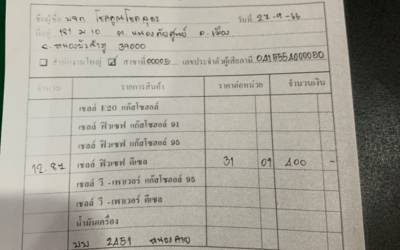 ชื่อผู้ซื้อ หจก. โชคคูณโชคคุคร วันที่ 27-9-66
ที่อยู่ 181 ม 10 ต. หนองภัยศูนย์ อ. เมือง
จ. หนองบัวลำภู 39000
สำนักงานใหญ่ สาขาที่ 00005 เลขประจำตัวผู้เสียภาษี
จำนวน รายการสินค้า ราคาต่อหน่วย จำนวนเงิน
เชลล์ E20 แก๊สโซฮอล์
เชลล์ ฟิวเซฟ แก๊สโซฮอล์ 91
เชลล์ ฟิวเซฟ แก๊สโซฮอล์ 95
12.87 เชลล์ ฟิวเซฟ ดีเซล 31 09 400 -
เชลล์ วี -เพาเวอร์ แก๊สโซฮอล์ 95
เชลล์ วี -เพาเวอร์ ดีเซล
น้ำมันเครื่อง
2451 หนองคาย